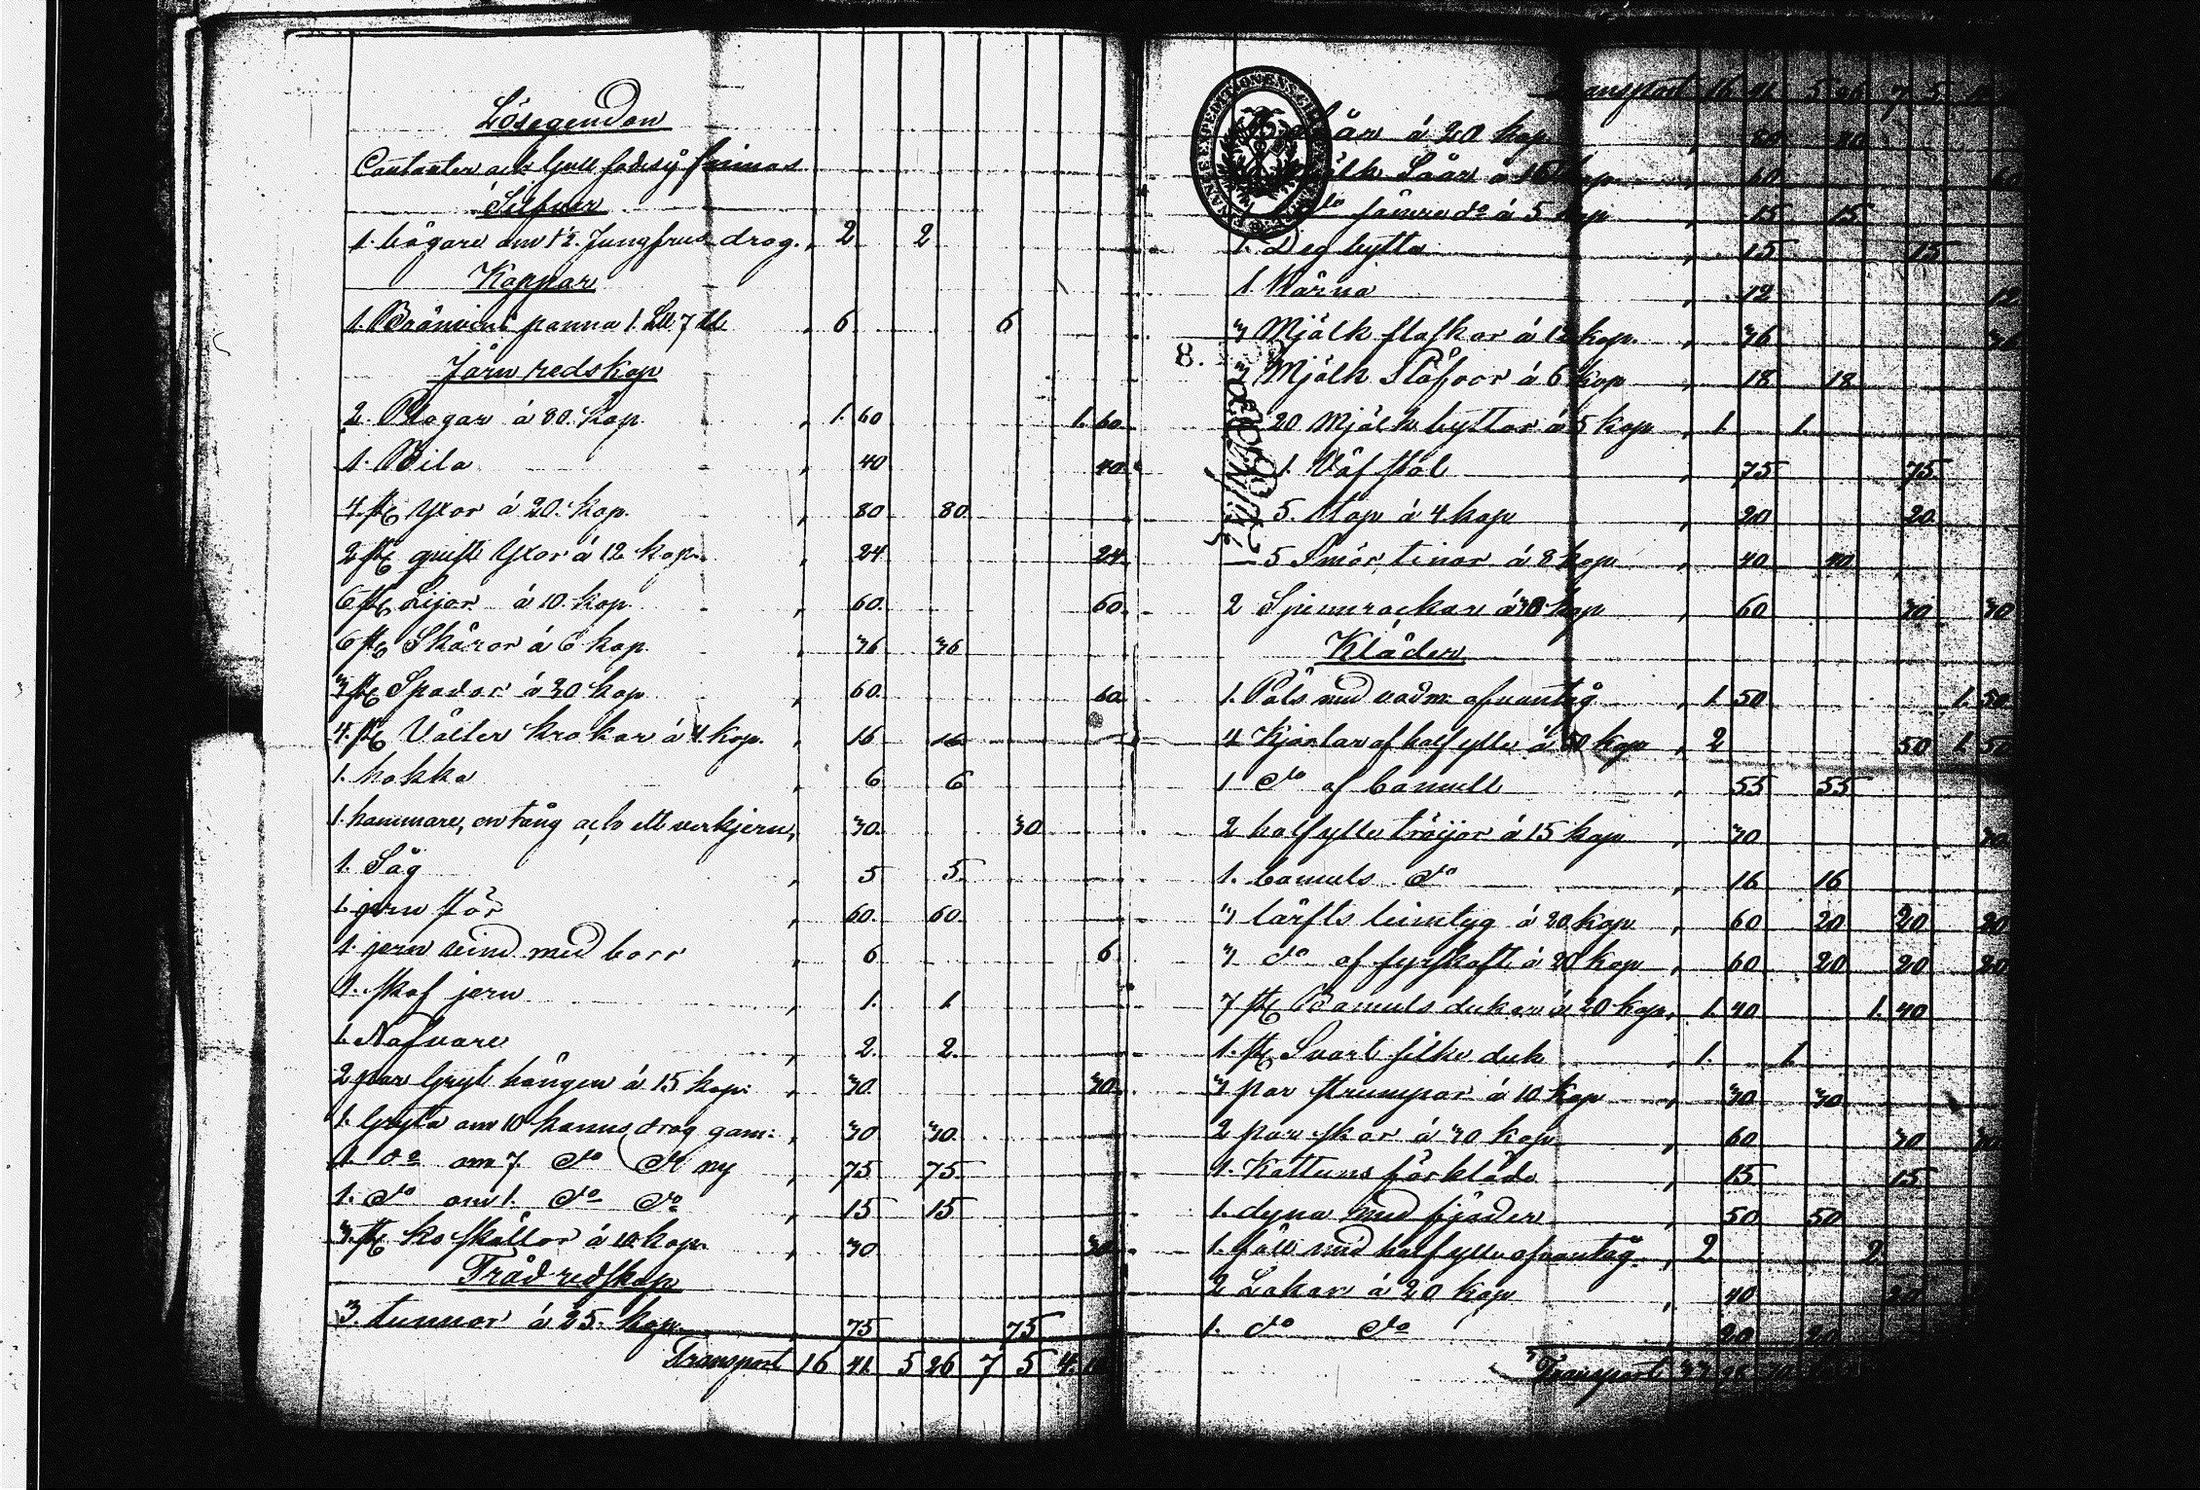 Lösegendom
Contanter och Gull fads ej finnas
Silfver
1. bägare om 1½ Jungfrus drag. " 2 2
Koppar
1. Bränvins panna 1. L℔ 7 ℔ " 6 6
Järn redskap
2. Plogar á 80. kop " 1. 60 1. 60
1. Bila " 40 40
4. st Yxor á 20. kop. " 80 80
2 st quist Yxor á 12 kop. " 24 24
6 st Lijor á 10. kop " 60 60
6 st Skäror á 6 kop " 36 36
3 st Spador á 20 kop " 60 60
4. st Vålter krokar á 4 kop. " 16 16
1. hakka " 6 6
1. hammare, en tång och ett verkjern, " 30 30
1. Såg " 5 5
1. jern stör " 60 60
1. jern vind med borr " 6 6
1. skaf jern " 1. 1
1. Nafvare " 2. 2.
2 par Gryt hängen á 15 kop: " 30 30
1. Gryta om 10 kanns drag gam: " 30 30
1. do om 7. do do ny " 75 75
1. do om 1. do do " 15 15
3. st ko skällor á 10 kop. " 30 30
Träd redskap
3. tunnor á 25. kop. 75 75
Transport 16 41. 5 26 7 5 4.
Transport 16 41 5 26 7 5
Såår á 20 kop
Mjölk Såår á 15 kop " 60 60
do sämre do á 5 kop " 15 15
1. Deg bytta " 15 15
1 Kärna " 12 12
3 Mjölk flaskor á 12 kop. " 36
8.
3 Mjölk Stäfvor á 6 kop " 18 18
20 Mjölk byttor á 5 kop " 1. 1.
1. Väf stol " 75 75
5. Stop á 4 kop " 20 20
5 Smör tinor á 8 kop " 40 40
2 Spinnrockar á 30 kop " 60 30 30
Kläder
1. Päls med vadm: ofvantyg " 1. 50 1. 50
4 Kjortlar af half ylle á 50 kop " 2 50 1. 50
1 do af bomull " 55 55
2 halfylle tröijor á 15 kop " 30 30
1. bomuls do " 16 16
3 lärfts linntyg á 20 kop " 60 20 20 20
3 do af fyrskaft á 20 kop " 60 20 20 20
7 st Bomuls dukar á 20 kop. " 1. 40 1. 40
1. st Svart silke duk " 1. 1.
3 par strumpor á 10 kop " 30 30
2 par skor á 30 kop " 60 30 30
1. Kattuns förkläde " 15 15
1. dyna med fjäder " 50 50
1. fäll med halfylle ofvantyg. " 2 2
2 Lakan á 20 kop " 40 20
1. do do 20 20
Transport 33